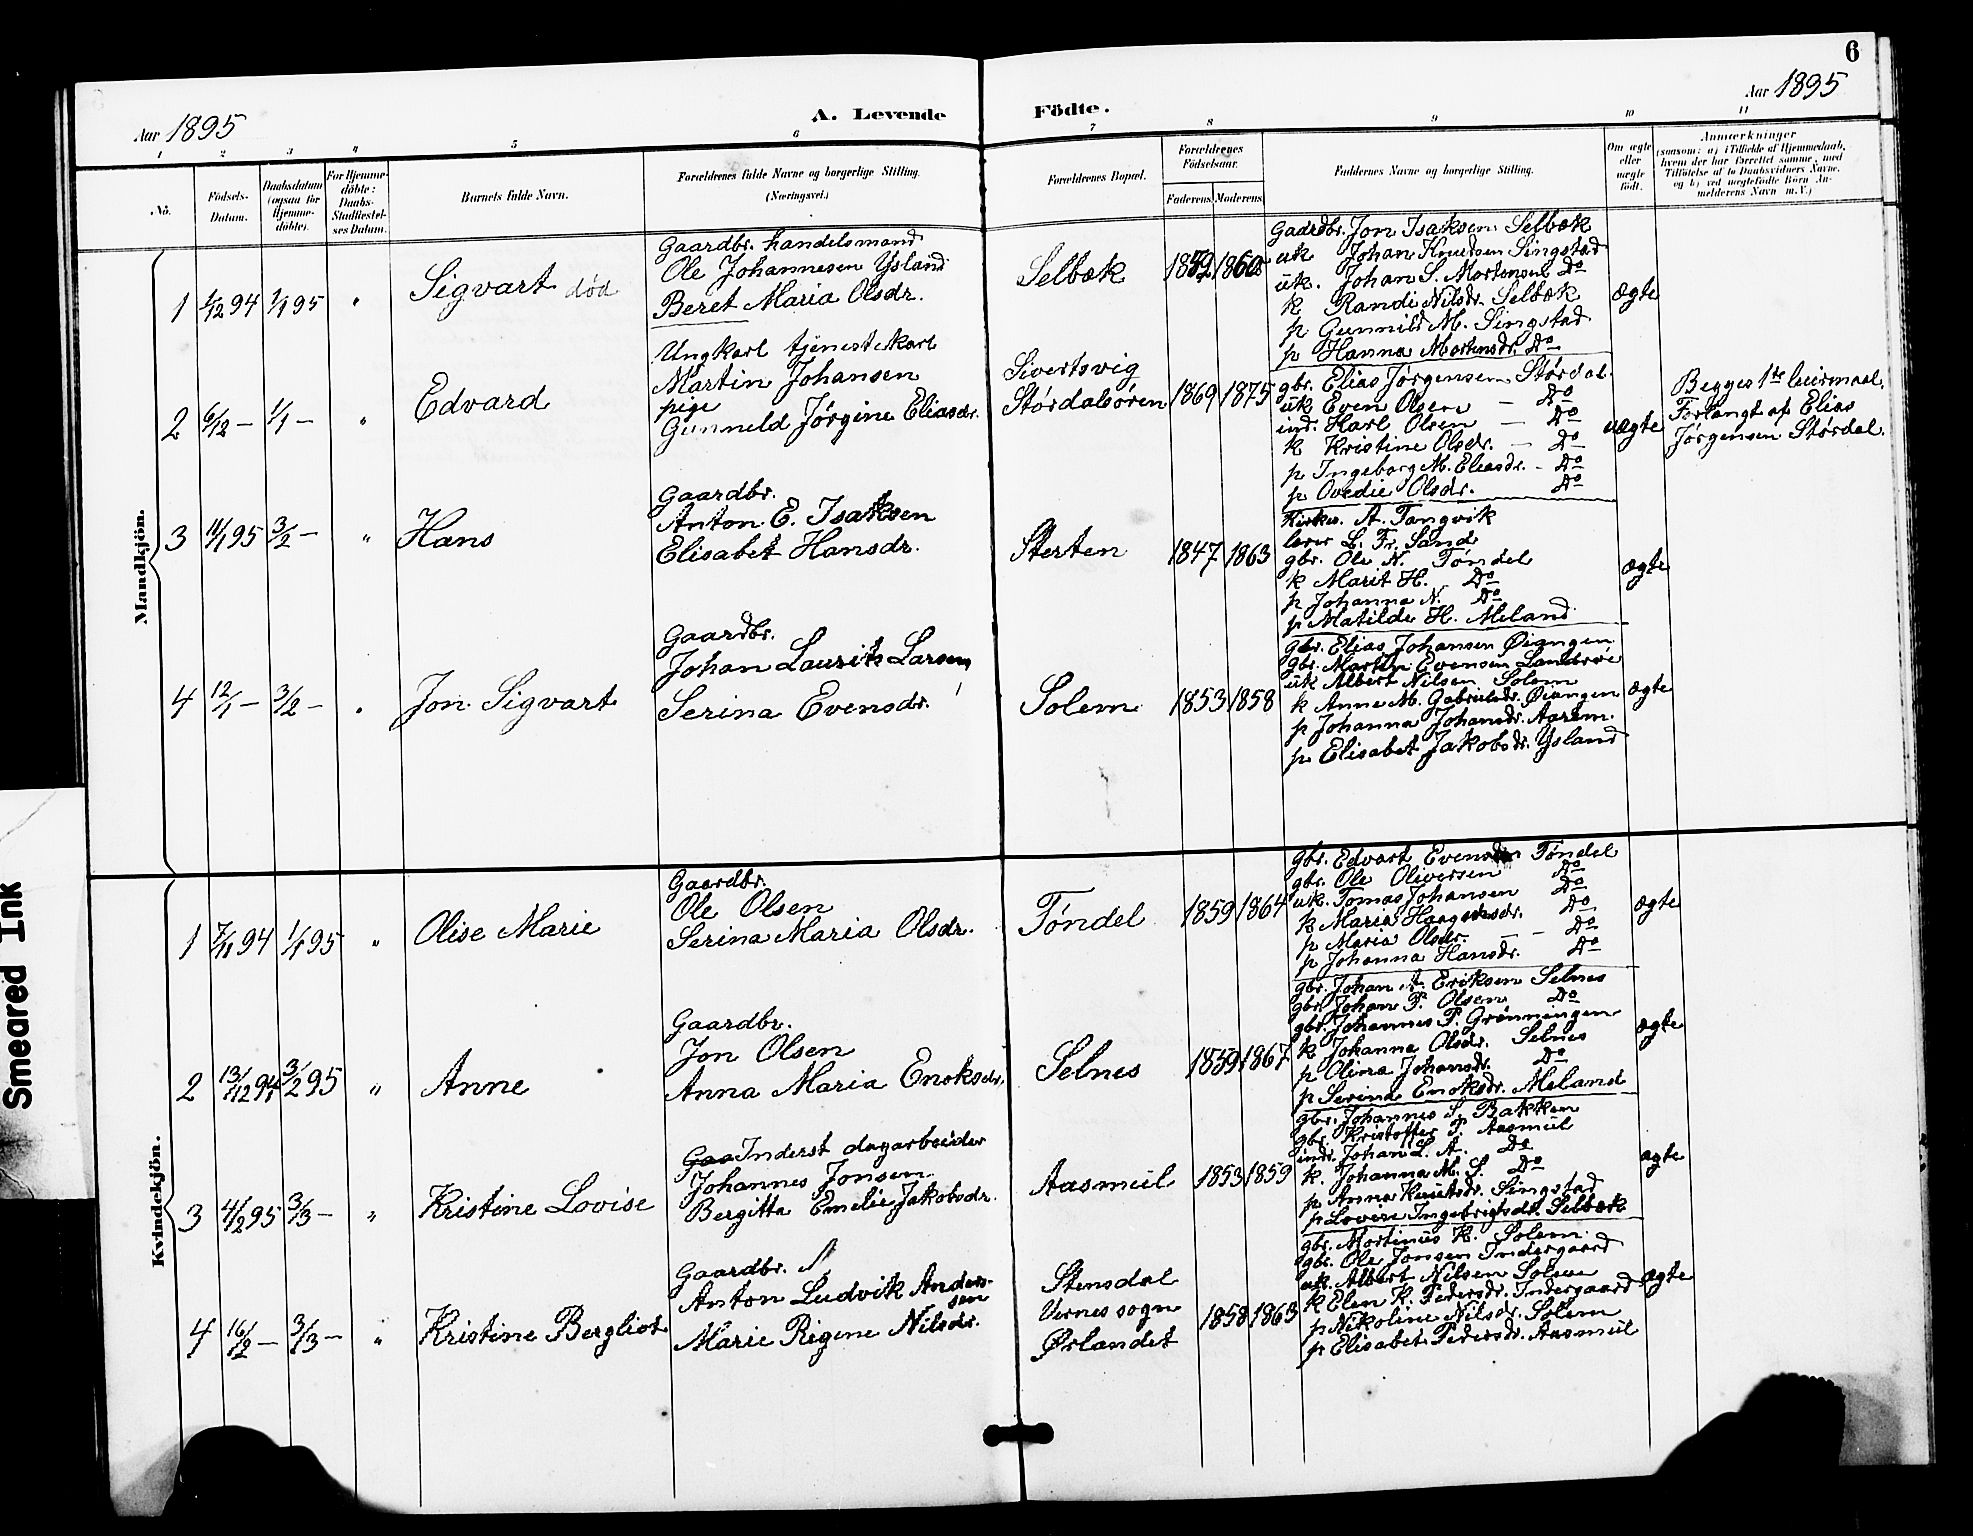 6
Aar 1895
A. Levende
Födte.
Aar 1895
1 2 3 4 5 6 7 8 9 10 11
No.
Födsels-
Datum.
Daabsdatum
(ogsaa for
Hjemme-
döbte).
For Hjemme-
döbte:
Daabs-
Stadfæstel-
ses Datum.
Barnets fulde Navn.
Forældrenes fulde Navne og borgerlige Stilling.
(Næringsvei.)
Forældrenes Bopæl.
Forældrenes
Födselsaar.
Faderens
Moderens
Faddernes Navne og borgerlige Stilling.
Om ægte
eller
uægte
födt.
Anmærkninger
(saasom: a) i Tilfælde af Hjemmedaab,
hvem der har forrettet samme, med
Tilföielse af to Daabsvidners Navne,
og b) ved uægtefödte Börn An-
melderens Navn m. V.)
Mandkjön.
1 1/12 94 1/1 95 "
Sigvart död
Gaardbr. handelsmand
Ole Johannesen Ysland
Beret Maria Olsdr.
Selbæk
1860
Gaardbr. Jon Isaksen Selbæk
uk Johan Knudsen Singstad
uk. Johan S. Mortensen Do
k Randi Nilsdr. Selbæk
p Gunnild M. Singstad
p Hanna Mortensdr. Do
ægte
2 6/12 — 1/1 — "
Edvard
Ungkarl tjenestekarl
Martin Johansen
pige
Gunneld Jørgine Eliasdr.
Sivertsvig
Størdalsøren
1869 1875
gbr. Elias Jørgensen Størdal.
uk Even Olsen — Do
ind. Karl Olsen — Do
k Kristine Olsdr. — Do
p Ingeborg M. Eliasdr. - Do
p Ovedie Olsdr. Do
uægte
Begges 1ste leiermaal,
Forlangt af Elias
Jørgensen Størdal.
3 11/1 95 3/2 — "
Hans
Gaardbr.
Anton E. Isaksen
Elisabet Hansdr.
Sterten
1847 1863
Kirkes. A. Tangvik
lærer L. Fr. Sand
gbr. Ole N. Tøndel
k Marit H. Do
p Johanna N. Do
p Matilde H. Meland
ægte
4 12/1 — 3/2 — "
Jon Sigvart
Gaardbr.
Johan Laurits Larsen
Serina Evensdr.
Solem
1853 1858
gbr. Elias Johansen Øiangen
gbr. Martin Evensen
uk Albert Nilsen Solem
k Anne M. Gabrielsdr. Øiangen
p Johanna Johansdr. Aarlem.
p Elisabet Jakobsdr. Ysland
ægte
Kvindekjön.
1 7/11 94 1/1 95 "
Olise Marie
Gaardbr.
Ole Olsen
Serina Maria Olsdr.
Tøndel
1859 1864
gbr. Edvart Evensen Tøndel
gbr. Ole Oliversen Do
uk. Tomas Johansen Do
k Maria Do
p Maria Olsdr. — - Do
p Johanna Hansdr. Do
ægte
2 13/12 94 3/2 95 "
Anne
Gaardbr.
Jon Olsen
Anna Maria Enoksdr.
Selnes
1859 1867
gbr. Johan A. Eriksen Selnes
gbr. Johan P. Olsen Do
gbr. Johannes P. Grønningen
k Johanna Olsdr. Selnes
p Olina Johansdr. Do
p Serina Enoksdr. Meland
ægte
3 4/2 95 3/3 — "
Kristine Lovise
Gaa Inderst dagarbeider
Johannes Jonsen
Bergitta Emelie Jakobsdr.
Aasmül
1853 1859
gbr. Johannes S. Bakken
gbr. Kristoffer P. Aasmül
indr. Johan L. A. Do
k. Johanna M. S. Do
p Anna Knutsdr. Singstad
p Lovise Ingebrigtsdr. Selbæk
ægte
4 16/2 — 3/3 — "
Kristine Bergliot
Gaardbr.
Anton Ludvik Anders-
sen
Marie Rigene Nilsdr.
Stensdal
Vernes sogn
Ørlandet
1858 1863
gbr. Mortinus K. Solem
gbr. Ole Jonsen Indergaard
uk. Albert Nilsen Solem
k Elen K. Pedersdr. Indergaard
p Nikoline Nilsdr. Solem
p Elisabet Pedersdr. Aasmül
ægte
Smeared Ink